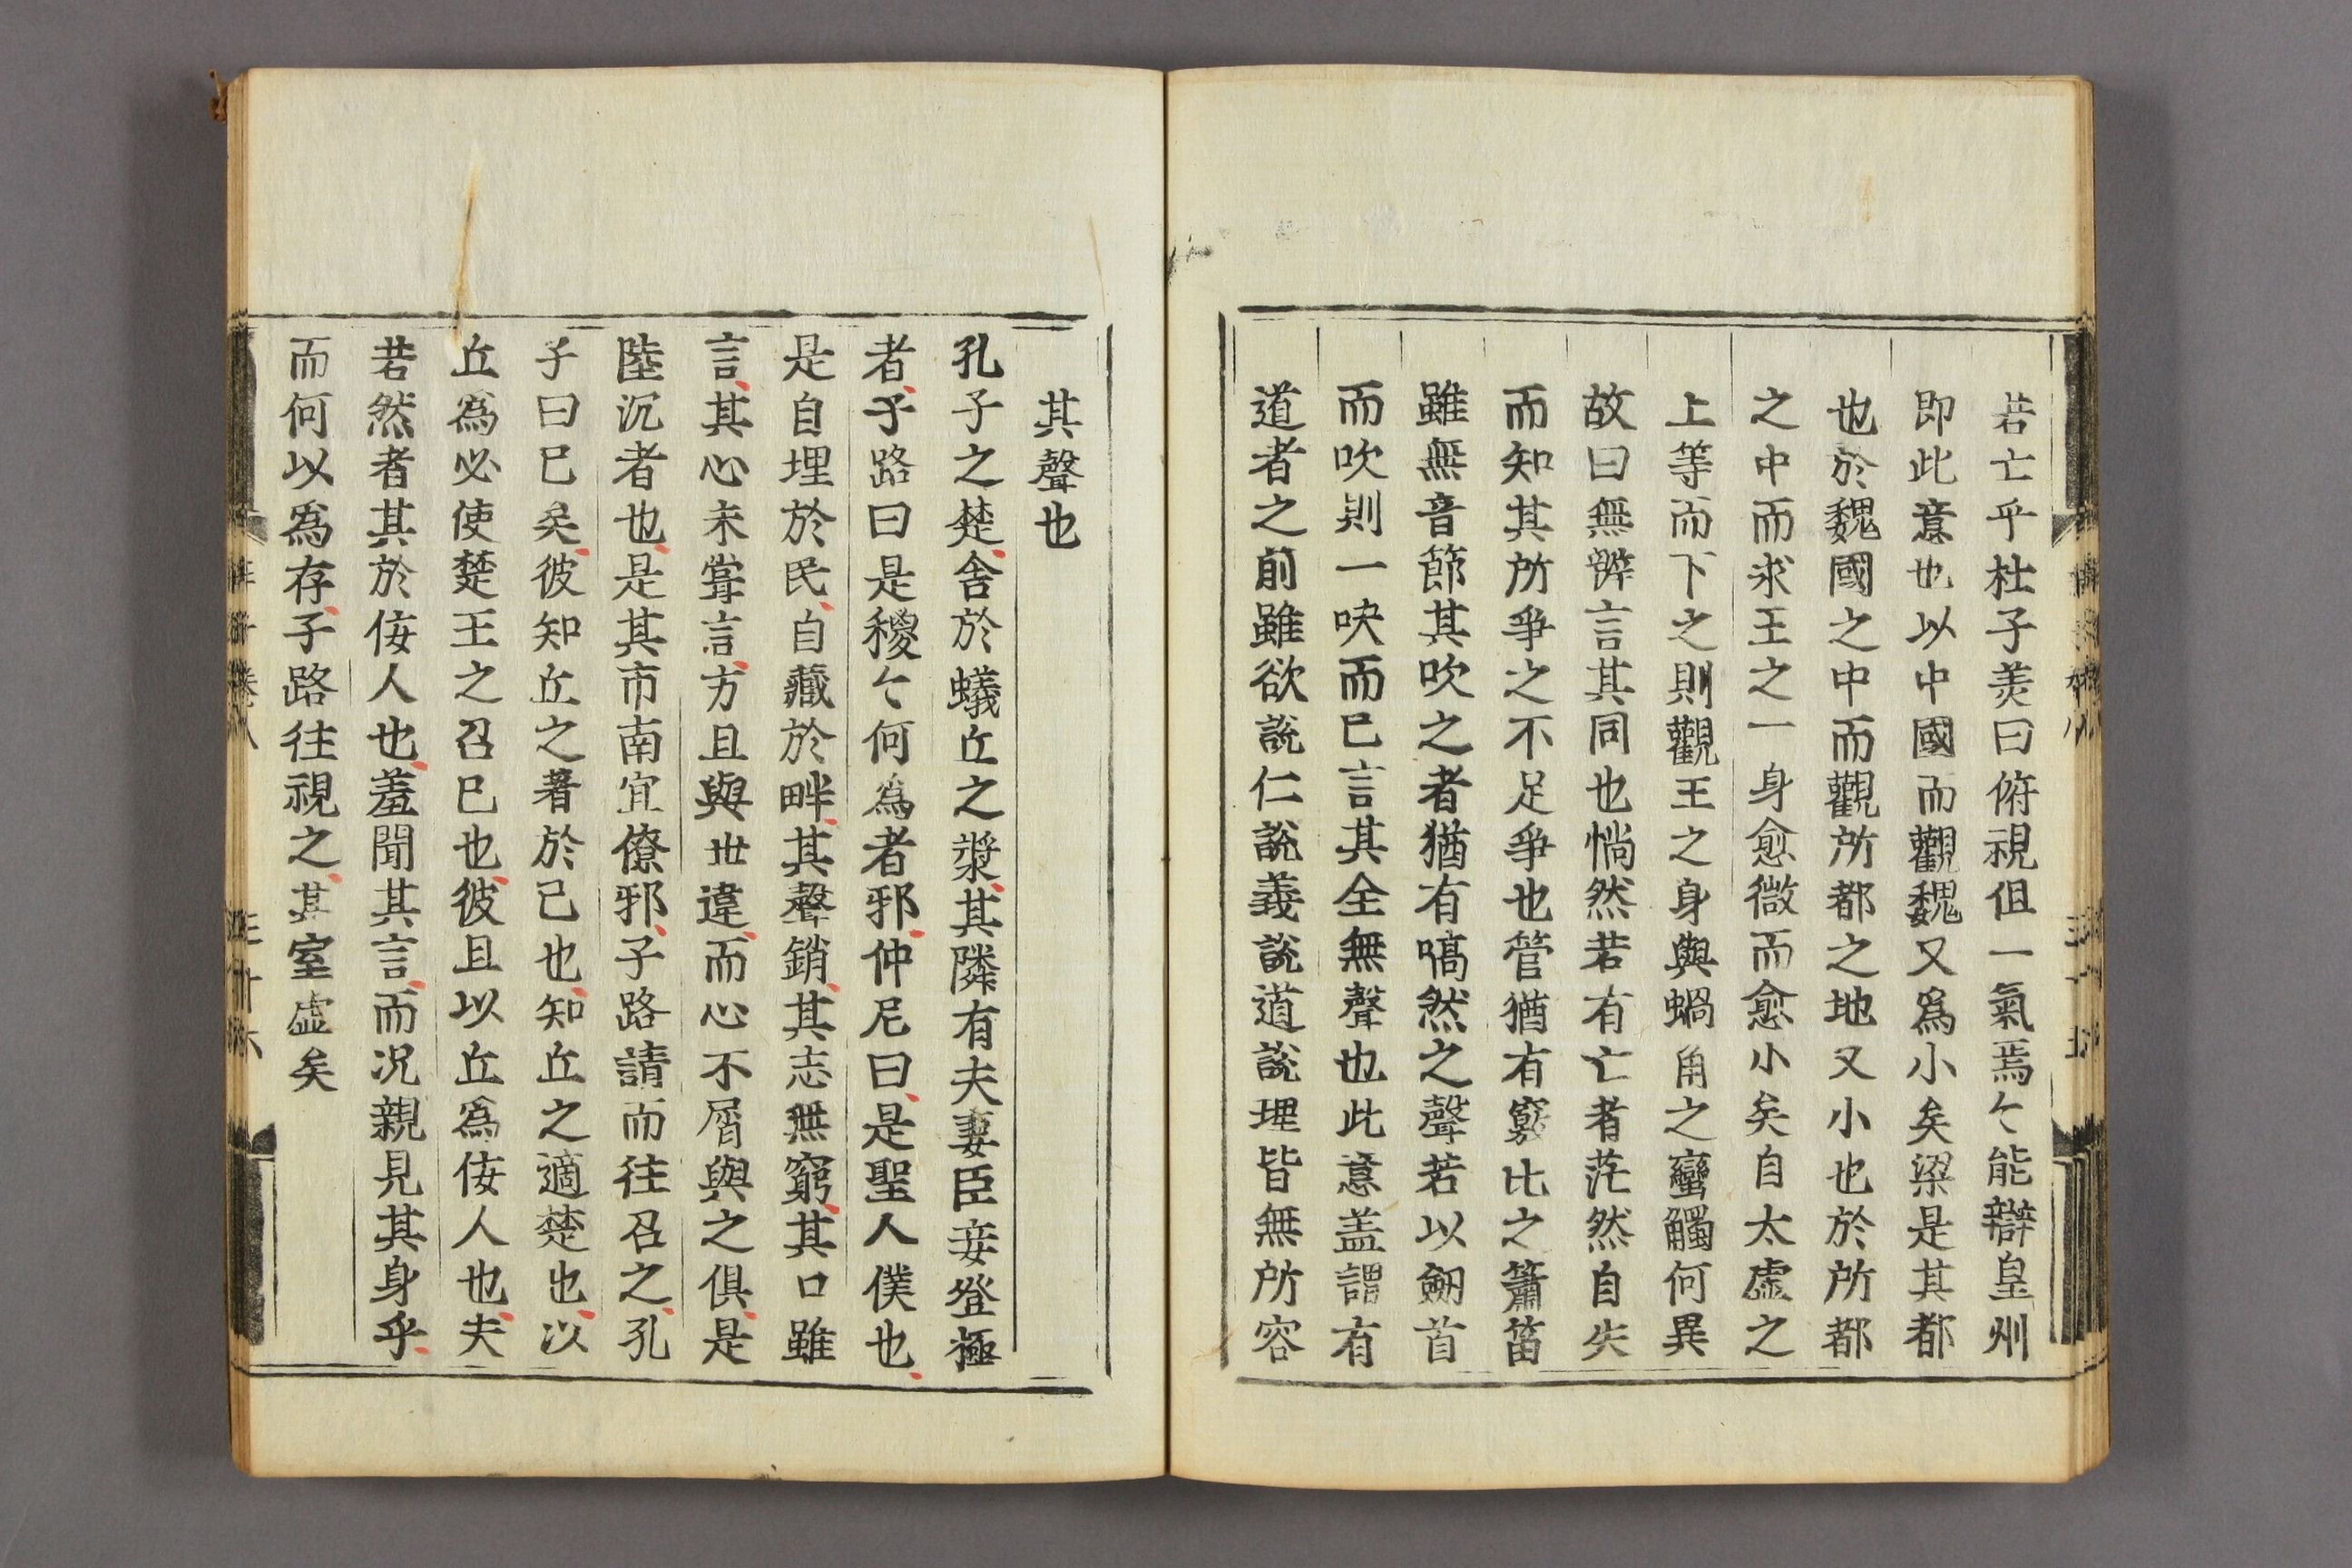 若亡乎杜子羙曰俯視但一氣焉〻能辯皇州
即此意也以中國而觀魏又爲小矣梁是其都
也於魏國之中而觀所都之地又小也於所都
之中而求王之一身愈微而愈小矣自太虛之
上等而下之則觀王之身與蝸角之蠻觸何異
故曰無辯言其同也惝然若有亡者茫然自失
而知其所爭之不足爭也管猶有竅比之簫笛
雖無音節其吹之者猶有嗃然之聲若以劒首
而吹則一吷而已言其全無聲也此意盖謂有
道者之前雖欲説仁説義説道説理皆無所容
其聲也
孔子之楚舍於蟻丘之漿其隣有夫妻臣妾登極
者子路曰是稯〻何爲者邪仲尼曰是聖人僕也
是自埋於民自藏於畔其聲銷其志無窮其口雖
言其心未甞言方且與世違而心不屑與之俱是
陸沉者也是其市南宜僚邪子路請而往召之孔
子曰已矣彼知丘之著於己也知丘之適楚也以
丘爲必使楚王之召已也彼且以丘爲佞人也夫
若然者其於佞人也羞聞其言而况親見其身乎
而何以爲存子路往視之其室虛矣